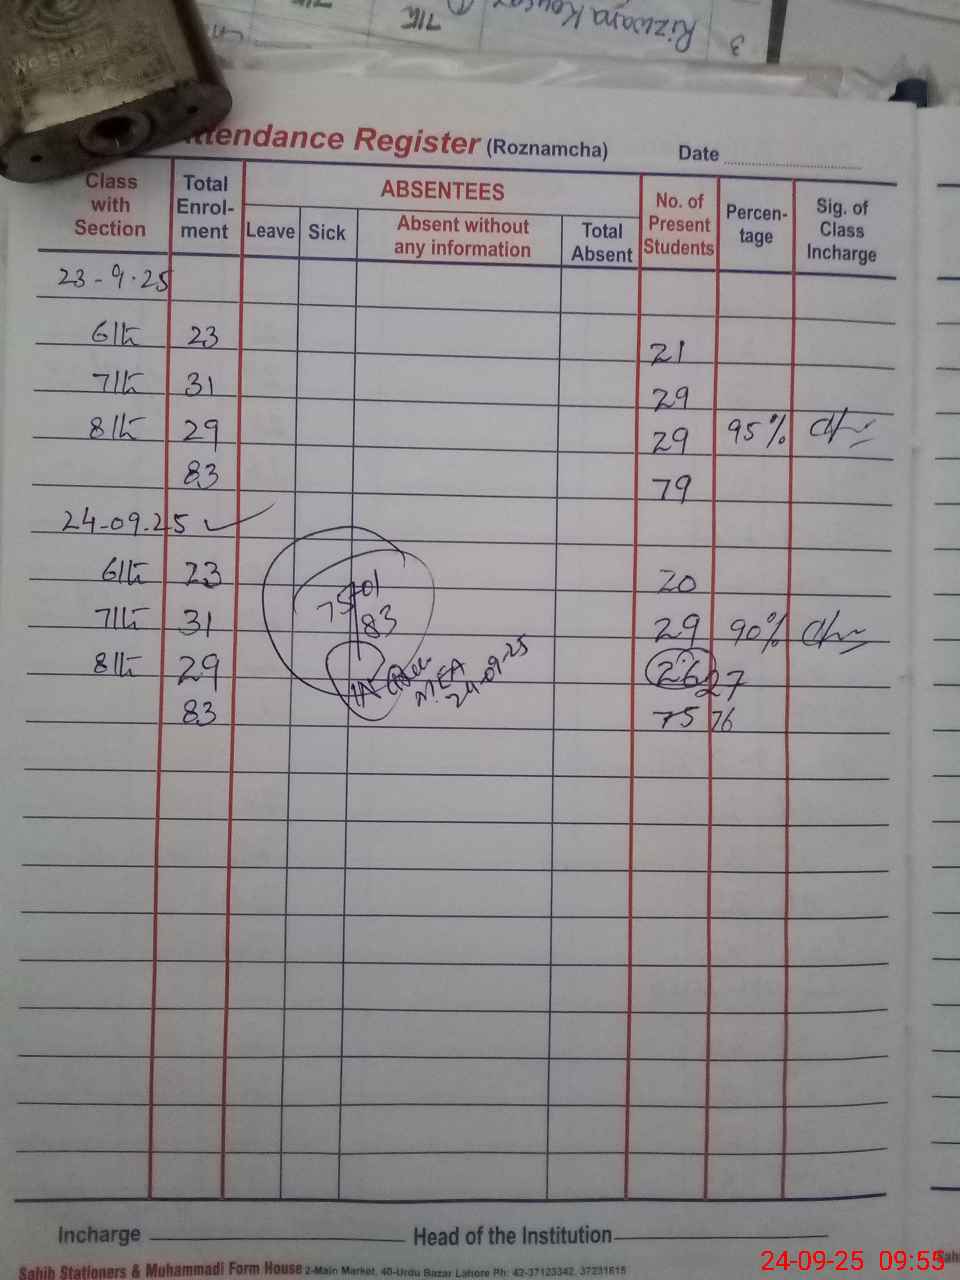 3 Rizwana Kousar 7th
Attendance Register (Roznamcha) Date
Class with Section
Total Enrol-ment
ABSENTEES
Leave Sick Absent without any information Total Absent
No. of Present Students
Percen-tage
Sig. of Class Incharge
23-9-25
6th 23 21
7th 31 29
8th 29 29 95%
83 79
24-09-25
6th 23 20
7th 31 29 90%
8th 29 26 27
83 75 76
75 01
83
MEA
24-09-25
Incharge Head of the Institution
Sahib Stationers & Muhammadi Form House 2-Main Market, 40-Urdu Bazar Lahore Ph: 42-37123342, 37231615
24-09-25 09:55